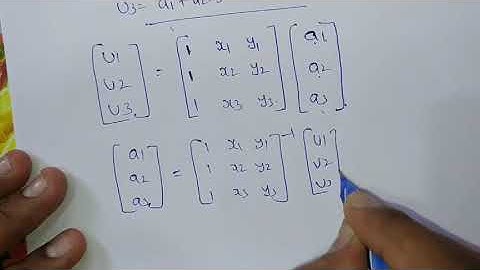 U3= a1+a2
[U1 U2 U3] = [1 x1 y1 1 x2 y2 1 x3 y3] [a1 a2 a3]
[a1 a2 a3] = [1 x1 y1 1 x2 y2 1 x3 y3]-1 [U1 U2 U3]